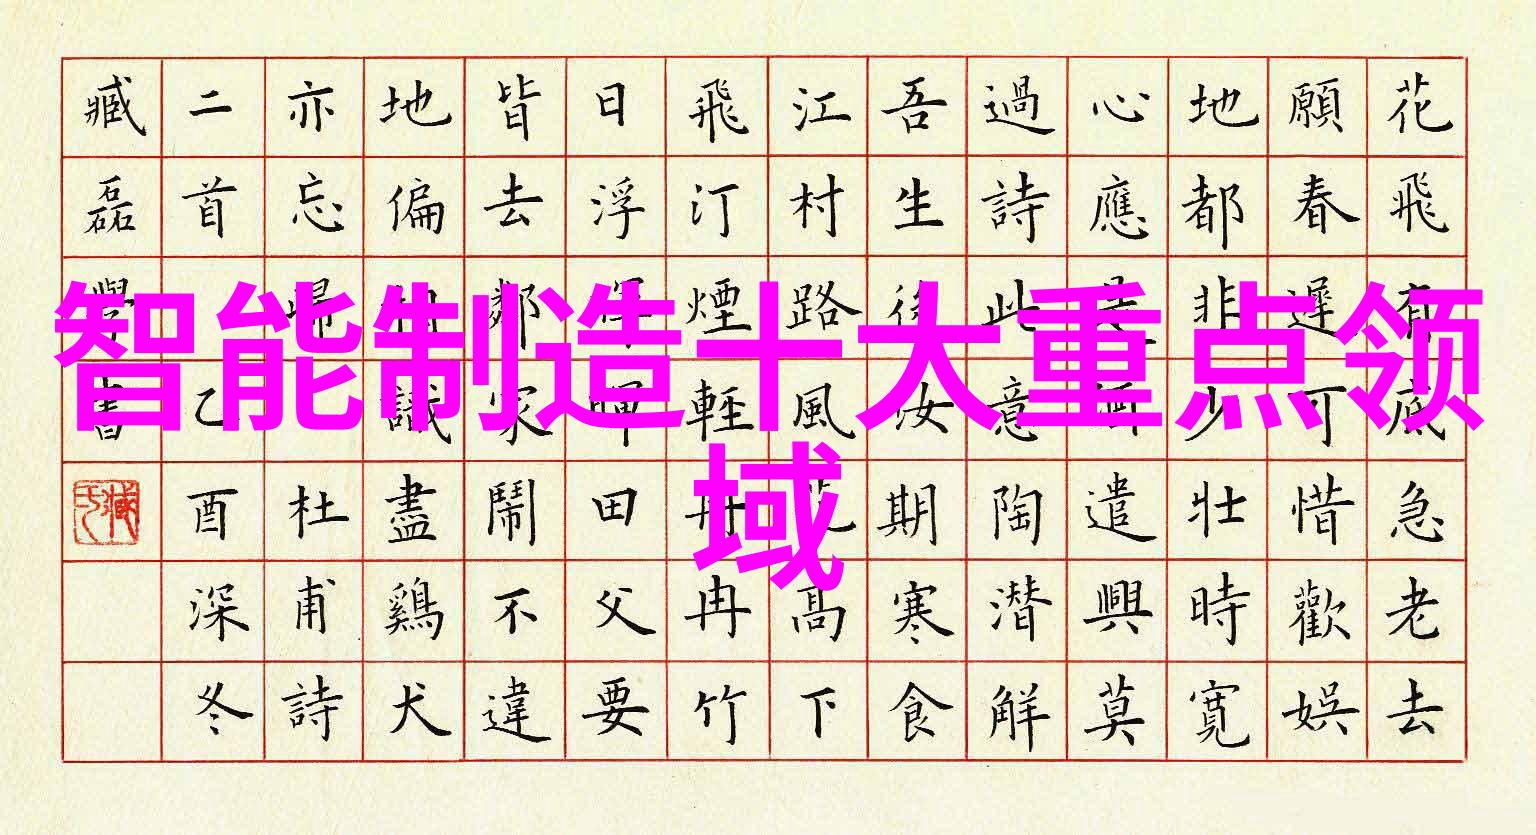 智能制造十大重点领
域
花飛有底急老去
願春遲可惜歡娛
地都非少壯時寬
心應是酒遣興莫
過詩此意陶潛解
吾生後汝期寒食
江村路風花高下
飛汀煙輕冉冉竹
日浮暉暉田父要
皆去鄰家鬧不違
地偏相識盡鷄犬
亦忘歸 杜甫詩
二首 乙酉深冬
臧磊學書